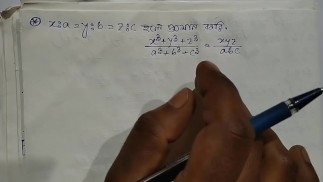 x:a = y:b = z:c হলে প্রমাণ করি,
x³+y³+z³ / a³+b³+c³ = xyz / abc